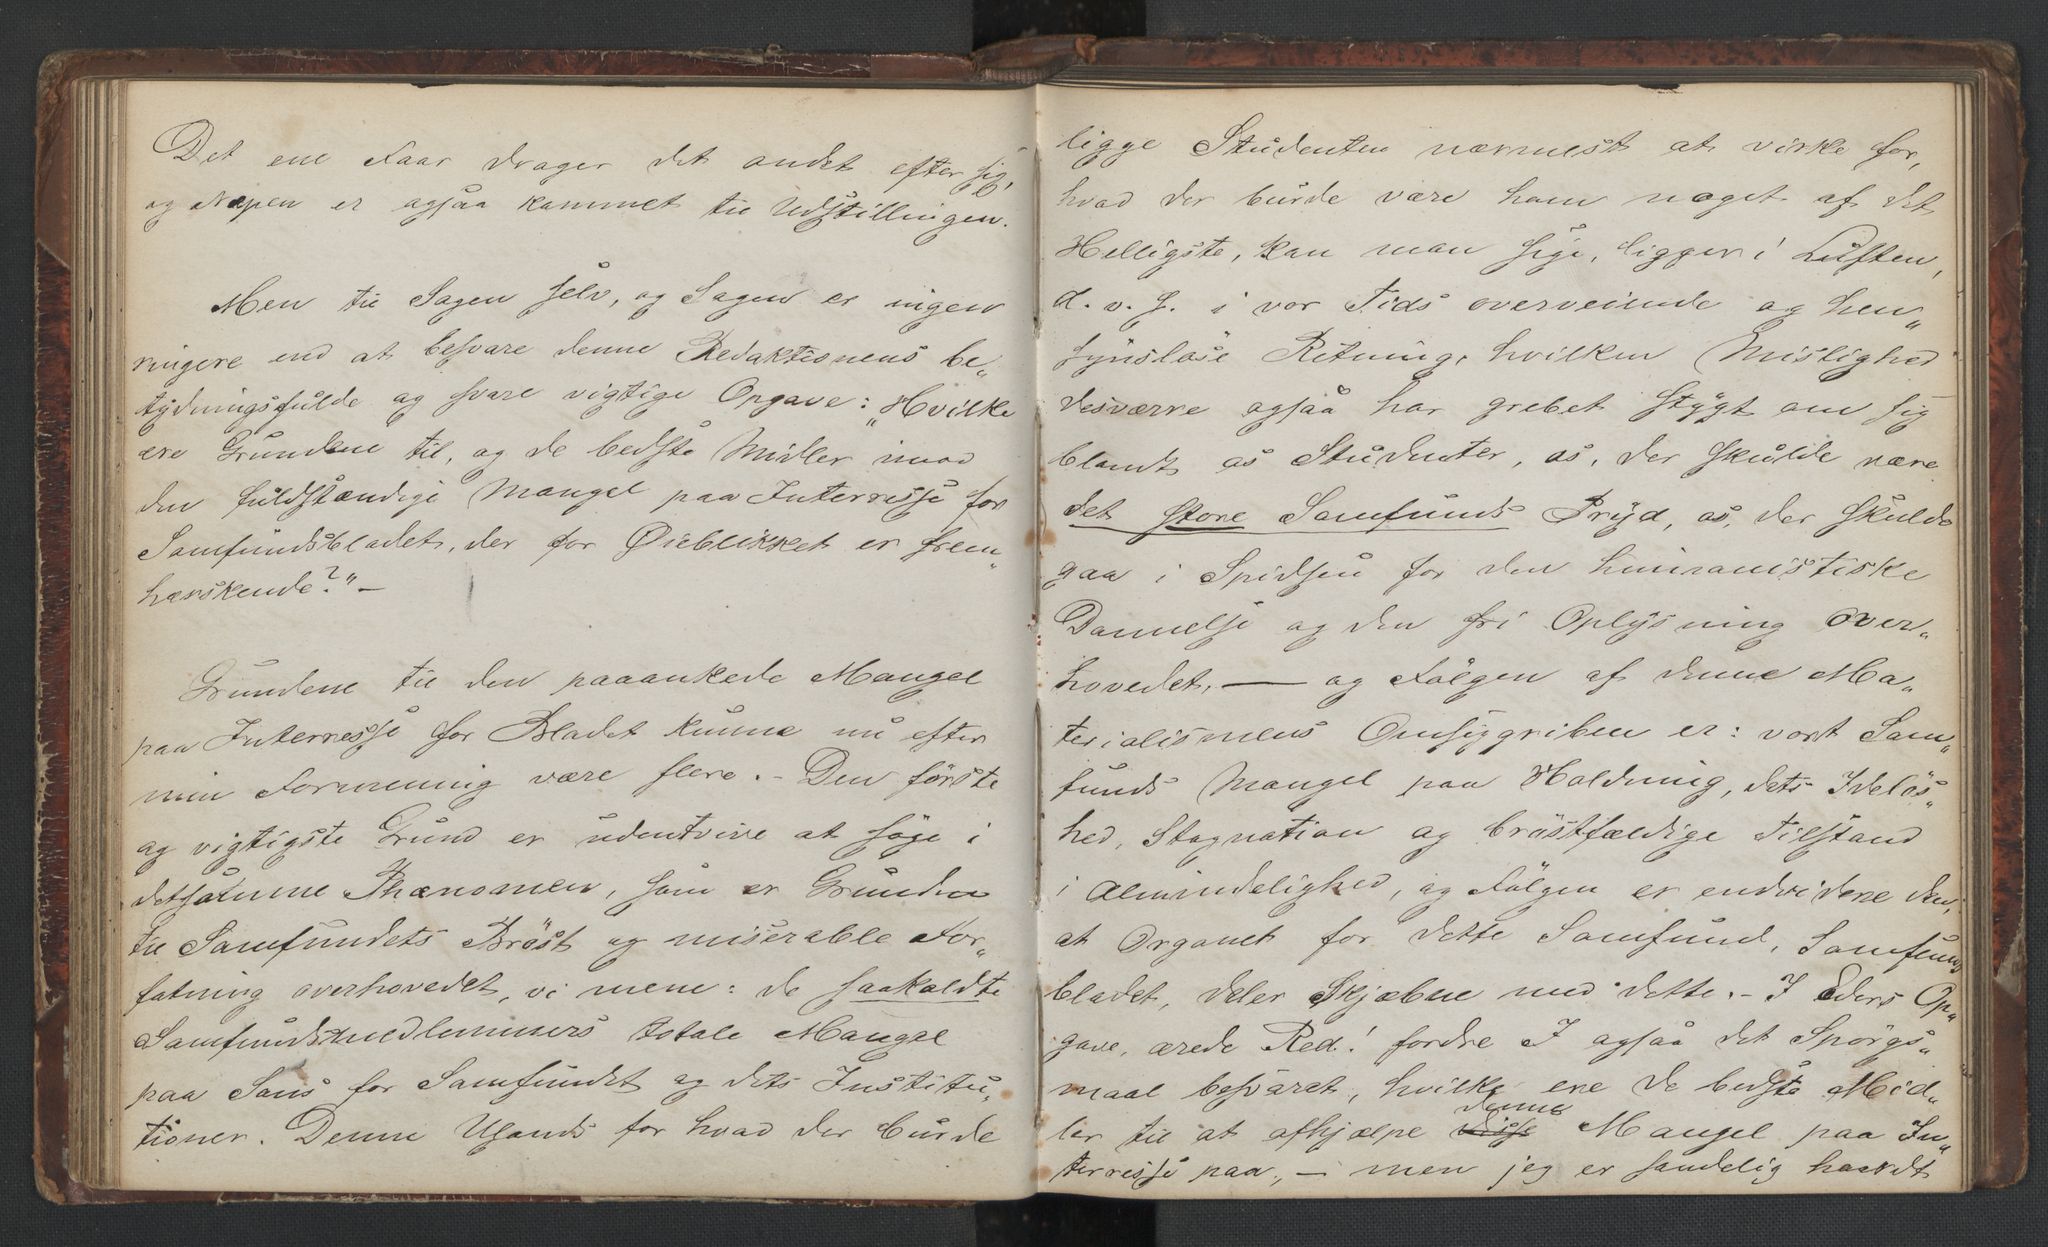 Det ene Faar drager det andet efter sig,
og Næpen er ogsaa kommet til Udstillingen.
Men til Sagen selv, og Sagen er ingen
ringere end at besvare denne Redaktionens be„
tydningsfulde og svare vigtige Opgave: „Hvilke
ere Grundene til, og de bedste Midler imod
den fuldstændige Mangel paa Interresse for
Samfundsbladet, der for Øieblikket er frem„
herskende?" —
Grundene til den paaankede Mangel
paa Interresse for Bladet kunne nu efter
min Formening være flere. — Den første
og vigtigste Grund er udentvivl at søge i
detsamme Phænomen, som er Grunden
til Samfundets Brøst og miserable For„
fatning overhovedet, vi mene: de saakaldte
Samfundsmedlemmers totale Mangel
paa Sans for Samfundet og dets Institu„
tioner. Denne Usands for hvad der burde
ligge Studenten nærmest at virke for,
hvad der burde være ham noget af det
Helligste, kan man sige, ligger i Luften,
d. v. s. i vor Tids overveiende og hen„
synsløse Retning, hvilken Mislighed
desværre ogsaa har grebet stygt om sig
blandt os Studenter, os, der skulde være
det store Samfunds Pryd, os, der skulde
gaa i Spidsen for den humanistiske
Dannelse og den fri Oplysning over„
hovedet, — og Følgen af denne Ma„
terialismens Omsiggriben er: vort Sam„
funds Mangel paa Holdning, dets Ideløs„
hed, Stagnation og brøstfældige Tilstand
i Almindelighed, og Følgen er endvidere den,
at Organet for dette Samfund, Samfunds
bladet, deler Skjæbne med dette. — I Eders Op„
gave, ærede Red! fordre I ogsaa det Spørgs„
maal besvaret, hvilke ere de bedste Mid„
denne
ler til at afhjælpe disse Mangel paa In„
terresse paa, — men jeg er sandelig haardt